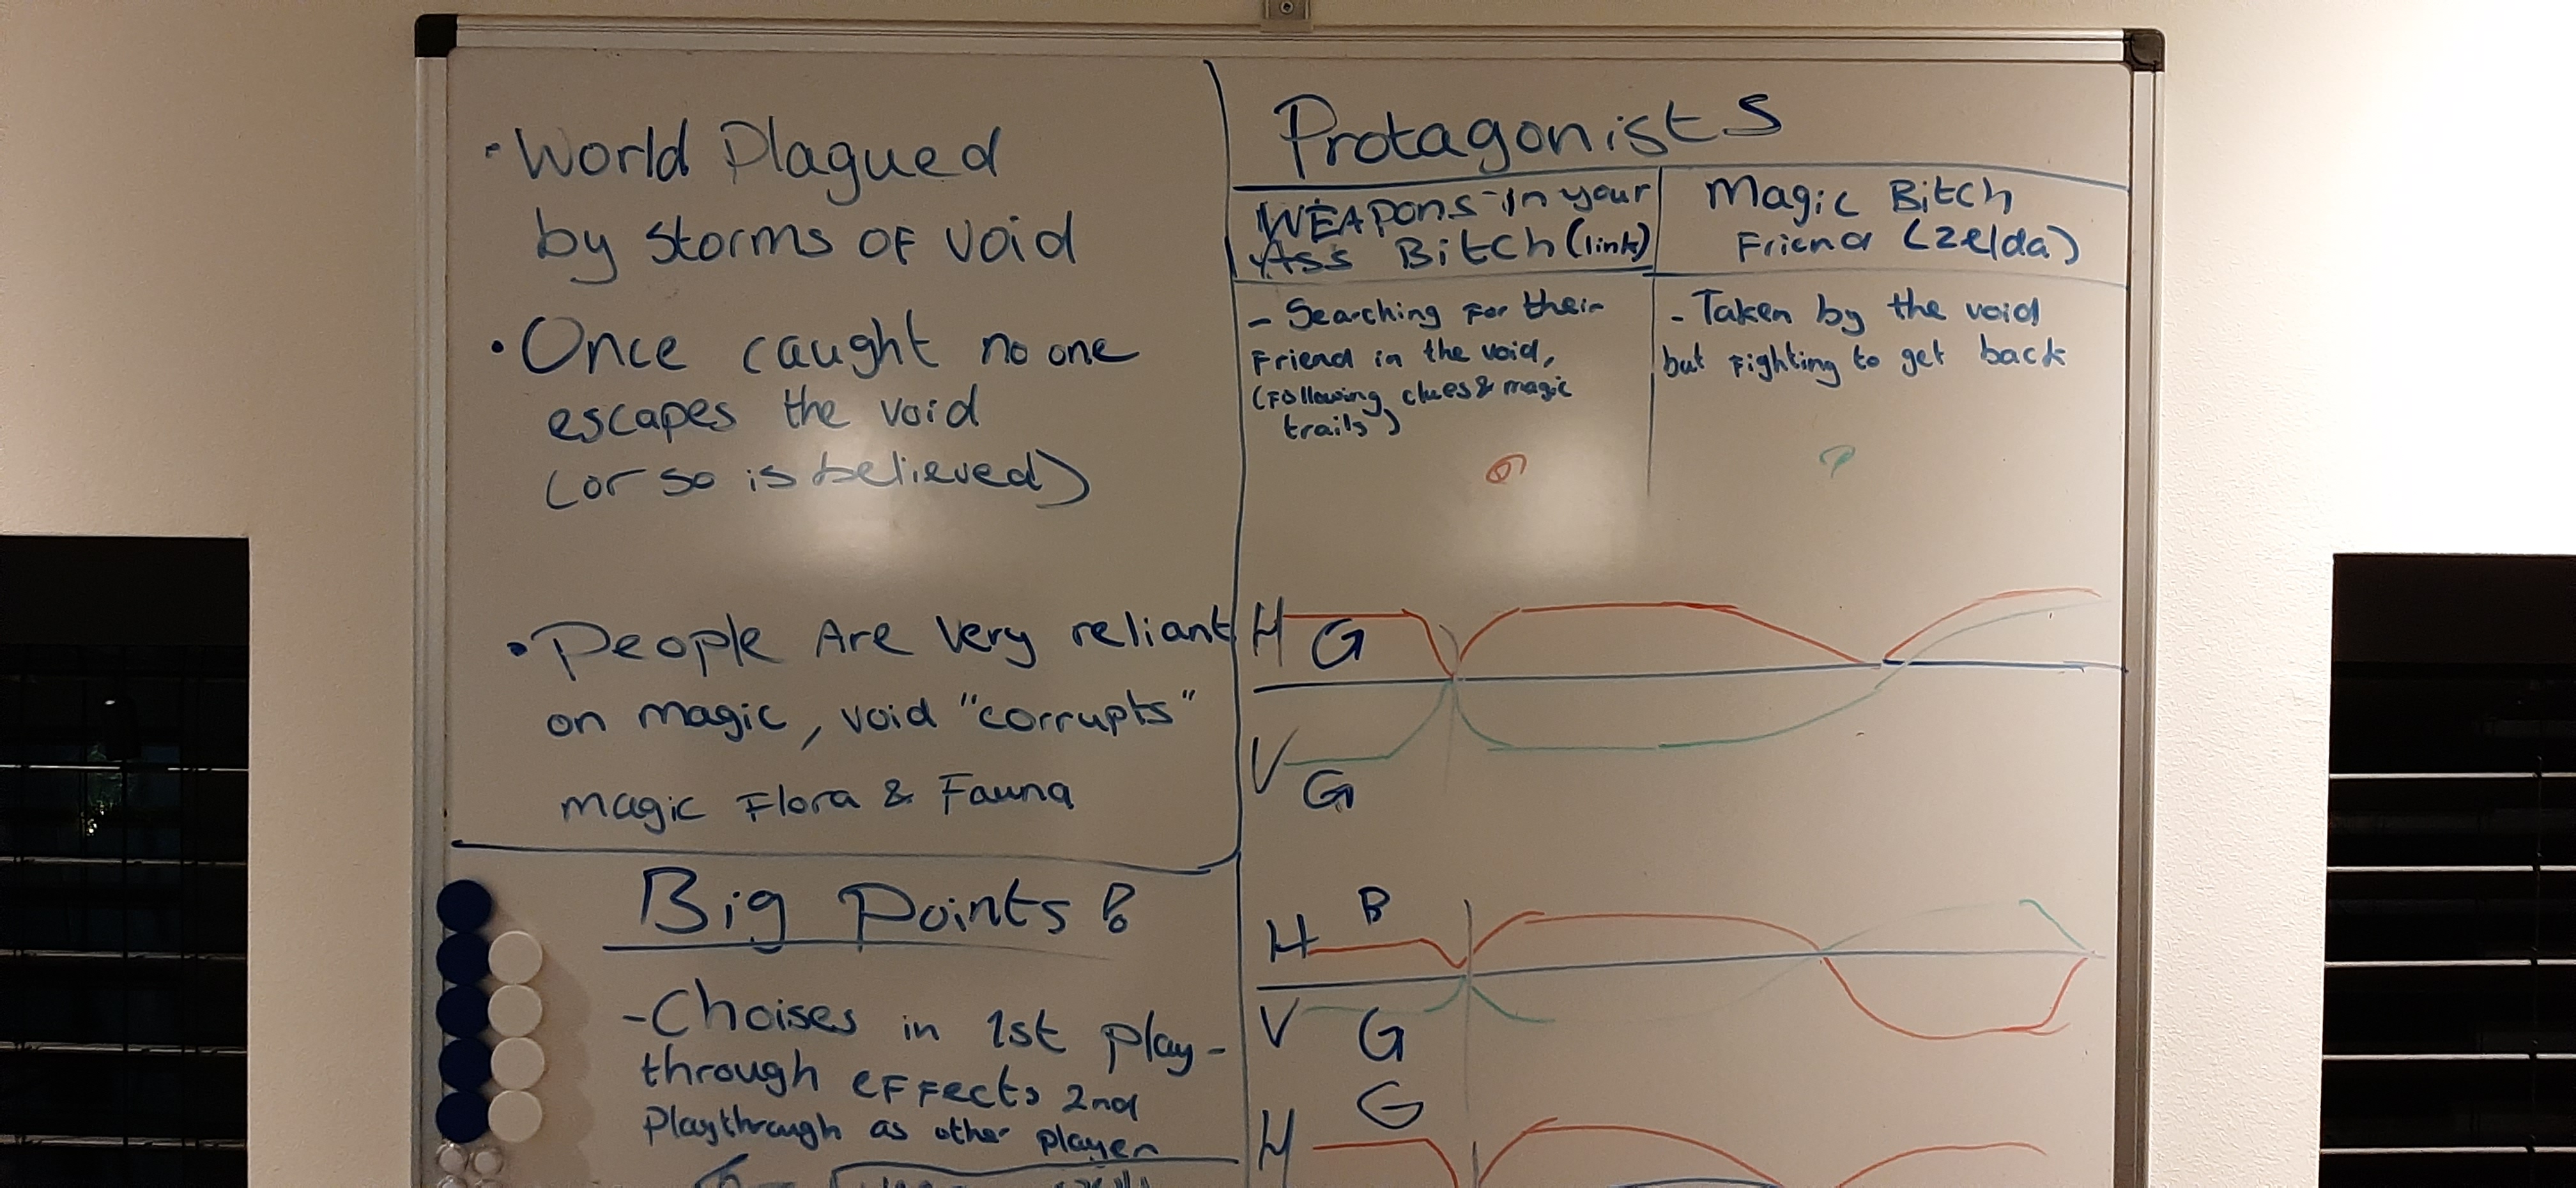 • World Plagued
by storms of void
• Once caught no one
escapes the void
(or so is believed)
• People Are very reliant
on magic, void "corrupts"
magic Flora & Fauna
Big Points!
- Choises in 1st play-
through effects 2nd
Playthrough as other player
Protagonists
WEAPONS-in your
Ass Bitch (link)
- Searching for their
Friend in the void,
(Following clues & magic
trails)
Magic Bitch
Friend (Zelda)
- Taken by the void
but fighting to get back
H G
V G
B
H
V G
G
H